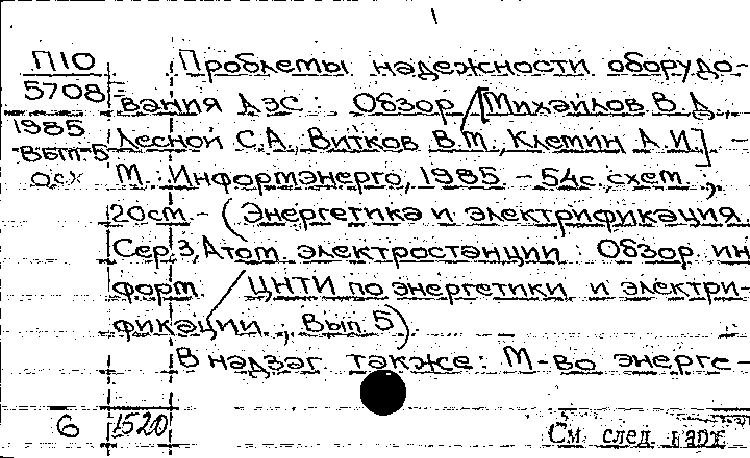 1
П10
5708
1985
вып-5
осх
Проблемы надежности оборудо-
вания АЭС : Обзор / [Михайлов В.А.,
Лесной С.А., Витков В.М., Клемин А.И.]. -
М. : Информэнерго, 1985. - 54с., схем. ;
20см. - (Энергетика и электрификация.
Сер. 3, Атом. электростанции : Обзор. ин
форм. / ЦНТИ по энергетики и электри-
фикации ; Вып. 5).
В надзаг. также: М-во энерге-
6 1520
См. след. карт.